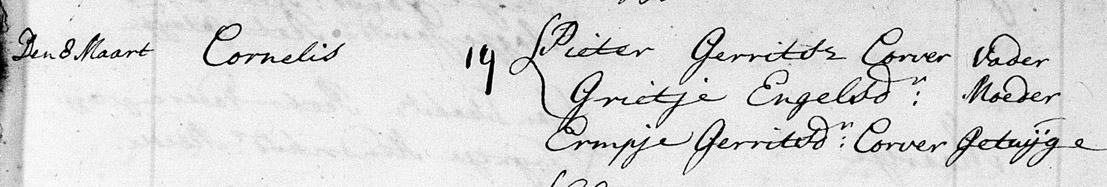 Den 8 Maart Cornelis 19 Pieter Gerritsz Corver Vader
Grietje Engelsdr: Moeder
Ermpje Gerritsdr: Corver getuijge